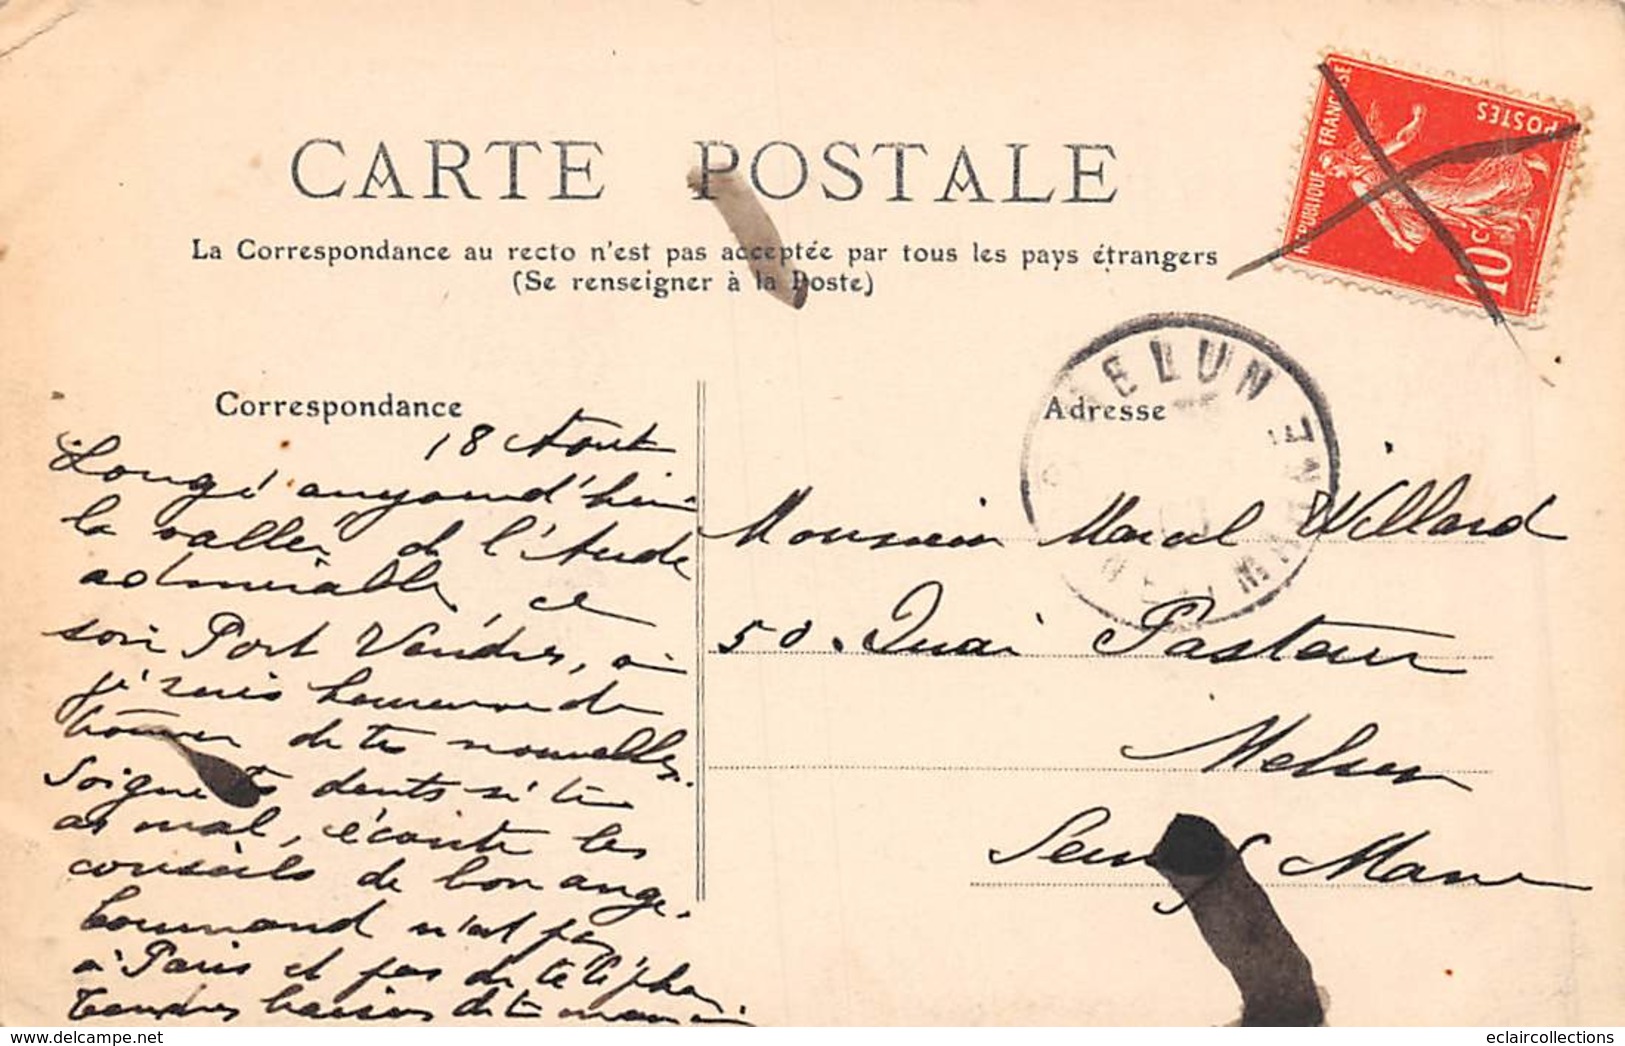 CARTE POSTALE
La Correspondance au recto n'est pas acceptée par tous les pays étrangers
(Se renseigner à la Poste)
RÉPUBLIQUE FRANÇAISE
POSTES
10 c
MELUN
SEINE-ET-MARNE
Correspondance
18 Aout
Longé aujourd'hui
la vallée de l'Aude
admirable, ce
soir Port Vendres, où
j'serais heureuse de
trouver de tes nouvelles.
Soigne tes dents si tu
as mal, écoute les
conseils de bon ange.
n'est pas
à Paris et pas de
Tendres baisers de ta maman
Adresse
Monsieur Marcel Willard
50. Quai Pasteur
Melun
Seine & Marne
eclaircollections
www.delcampe.net